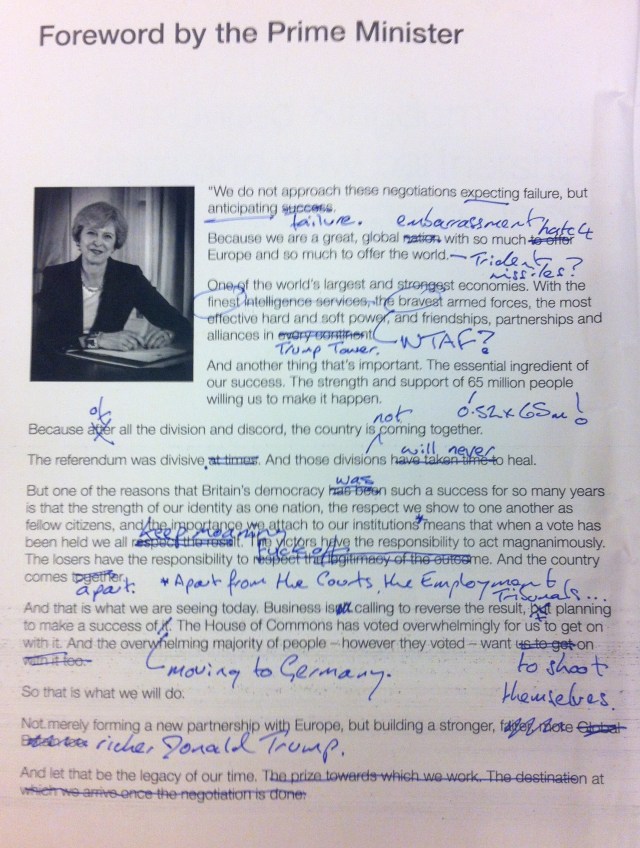 Foreword by the Prime Minister
"We do not approach these negotiations expecting failure, but
anticipating success.
failure. embarrassment hatch
Because we are a great, global nation with so much to offer
Europe and so much to offer the world. — Trident
missiles?
One of the world's largest and strongest economies. With the
finest intelligence services, the bravest armed forces, the most
effective hard and soft power, and friendships, partnerships and
alliances in every continent WTAF?
Trump Tower.
And another thing that's important. The essential ingredient of
our success. The strength and support of 65 million people
willing us to make it happen.
0.52 x 65m!
of not
Because after all the division and discord, the country is coming together.
will never
The referendum was divisive at times. And those divisions have taken time to heal.
was
But one of the reasons that Britain's democracy has been such a success for so many years
is that the strength of our identity as one nation, the respect we show to one another as
fellow citizens, and the importance we attach to our institutions* means that when a vote has
keep moaning
been held we all respect the result. The victors have the responsibility to act magnanimously.
Fuck off
The losers have the responsibility to respect the legitimacy of the outcome. And the country
comes together.
apart. * Apart from the Courts, the Employment
Tribunals...
And that is what we are seeing today. Business is calling to reverse the result, but planning
to make a success of it. The House of Commons has voted overwhelmingly for us to get on
with it. And the overwhelming majority of people – however they voted – want us to get on
with it too.
moving to Germany. to shoot
themselves.
So that is what we will do.
Not merely forming a new partnership with Europe, but building a stronger, fairer, more Global
Britain richer Donald Trump.
And let that be the legacy of our time. The prize towards which we work. The destination at
which we arrive once the negotiation is done.